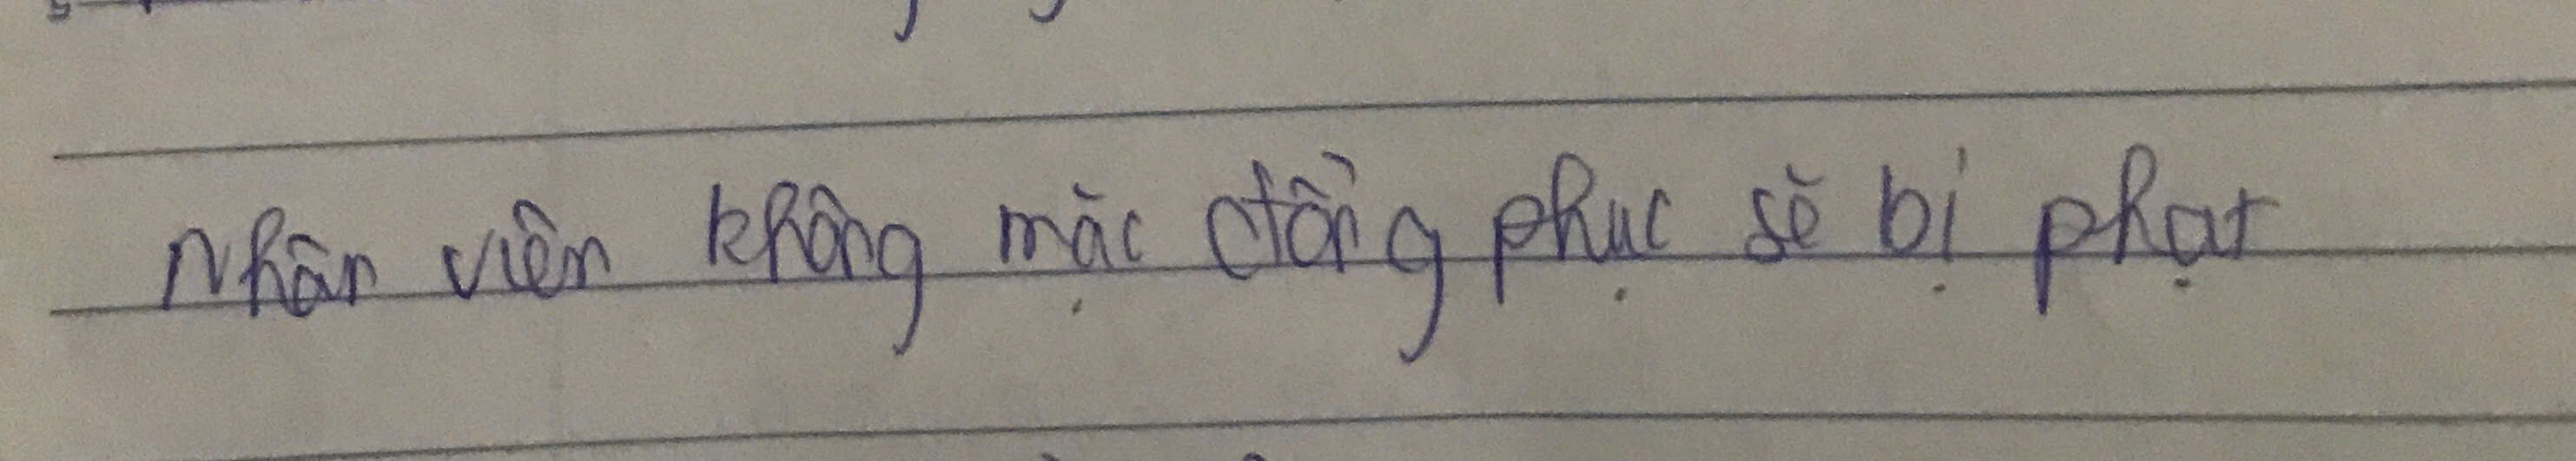 Nhân viên không mặc đồng phục sẽ bị phạt